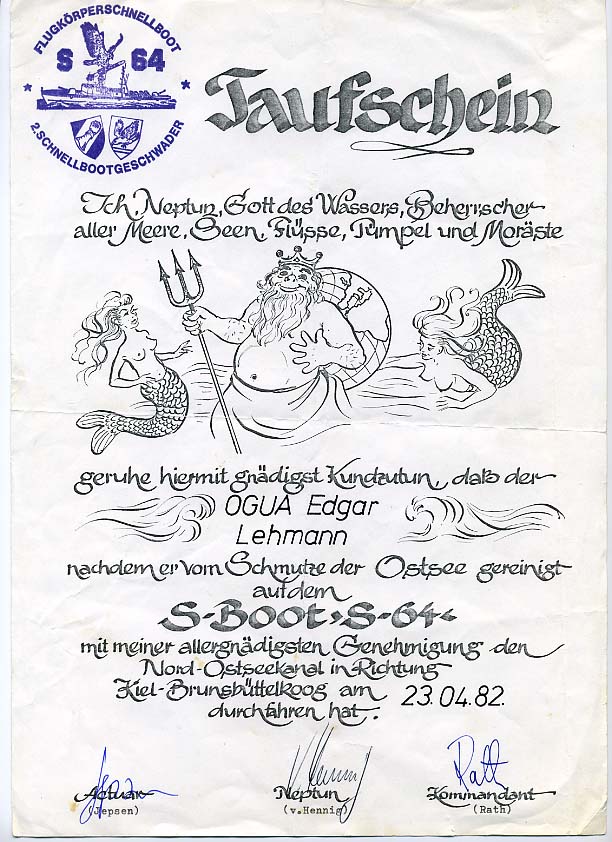 FLUGKÖRPERSCHNELLBOOT
S 64
2. SCHNELLBOOTGESCHWADER
Taufschein
Ich, Neptun, Gott des Wassers, Beherrscher
aller Meere, Seen, Flüsse, Tümpel und Moräste
geruhe hiermit gnädigst Kundzutun, daß der
OGUA Edgar
Lehmann
nachdem er vom Schmutze der Ostsee gereinigt
auf dem
S-Boot »S-64«
mit meiner allergnädigsten Genehmigung den
Nord-Ostseekanal in Richtung
Kiel-Brunsbüttelkoog am 23.04.82.
durchfahren hat.
Actuar Neptun Kommandant
(Jepsen) (v.Hennig) (Rath)